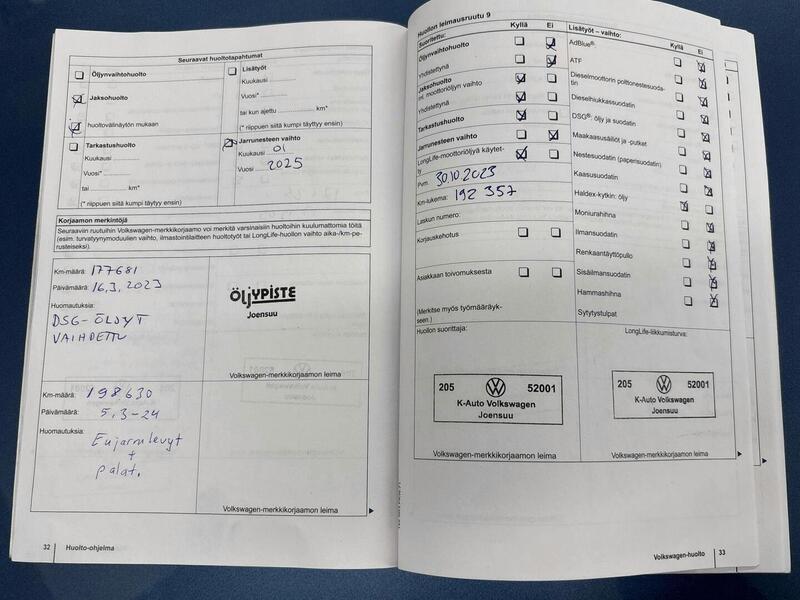 Seuraavat huoltotapahtumat
Öljynvaihtohuolto
Jaksohuolto
huoltovälinäytön mukaan
Tarkastushuolto
Kuukausi
Vuosi*
tai km*
(* riippuen siitä kumpi täyttyy ensin)
Lisätyöt
Kuukausi
Vuosi*
tai kun ajettu km*
(* riippuen siitä kumpi täyttyy ensin)
Jarrunesteen vaihto
Kuukausi 01
Vuosi 2025
Korjaamon merkintöjä
Seuraaviin ruutuihin Volkswagen-merkkikorjaamo voi merkitä varsinaisiin huoltoihin kuulumattomia töitä
(esim. turvatyynymoduulien vaihto, ilmastointilaitteen huoltotyöt tai LongLife-huollon vaihto aika-/km-pe-
rusteiseksi).
Km-määrä: 177681
Päivämäärä: 16,3,2023
Huomautuksia:
DSG-ÖLJYT
VAIHDETTU
ÖLJYPISTE
Joensuu
Volkswagen-merkkikorjaamon leima
Km-määrä: 198,630
Päivämäärä: 5,3-24
Huomautuksia:
Etujarrulevyt
+
palat.
Volkswagen-merkkikorjaamon leima
32 Huolto-ohjelma
Huollon leimausruutu 9
Suoritettu: Kyllä Ei
Öljynvaihtohuolto
Yhdistettynä
Jaksohuolto
ml. moottoriöljyn vaihto
Yhdistettynä
Tarkastushuolto
Jarrunesteen vaihto
LongLife-moottoriöljyä käytet-
ty
Pvm. 30.10.2023
Km-lukema: 192 357
Laskun numero:
Korjauskehotus
Asiakkaan toivomuksesta
(Merkitse myös työmääräyk-
seen.)
Lisätyöt – vaihto: Kyllä Ei
AdBlue®:
ATF
Dieselmoottorin polttonestesuoda-
tin
Dieselhiukkassuodatin
DSG®: öljy ja suodatin
Maakaasusäiliöt ja -putket
Nestesuodatin (paperisuodatin)
Kaasusuodatin
Haldex-kytkin: öljy
Moniurahihna
Ilmansuodatin
Renkaantäyttöpullo
Sisäilmansuodatin
Hammashihna
Sytytystulpat
Huollon suorittaja:
205 52001
K-Auto Volkswagen
Joensuu
Volkswagen-merkkikorjaamon leima
LongLife-liikkumisturva:
205 52001
K-Auto Volkswagen
Joensuu
Volkswagen-merkkikorjaamon leima
Volkswagen-huolto 33